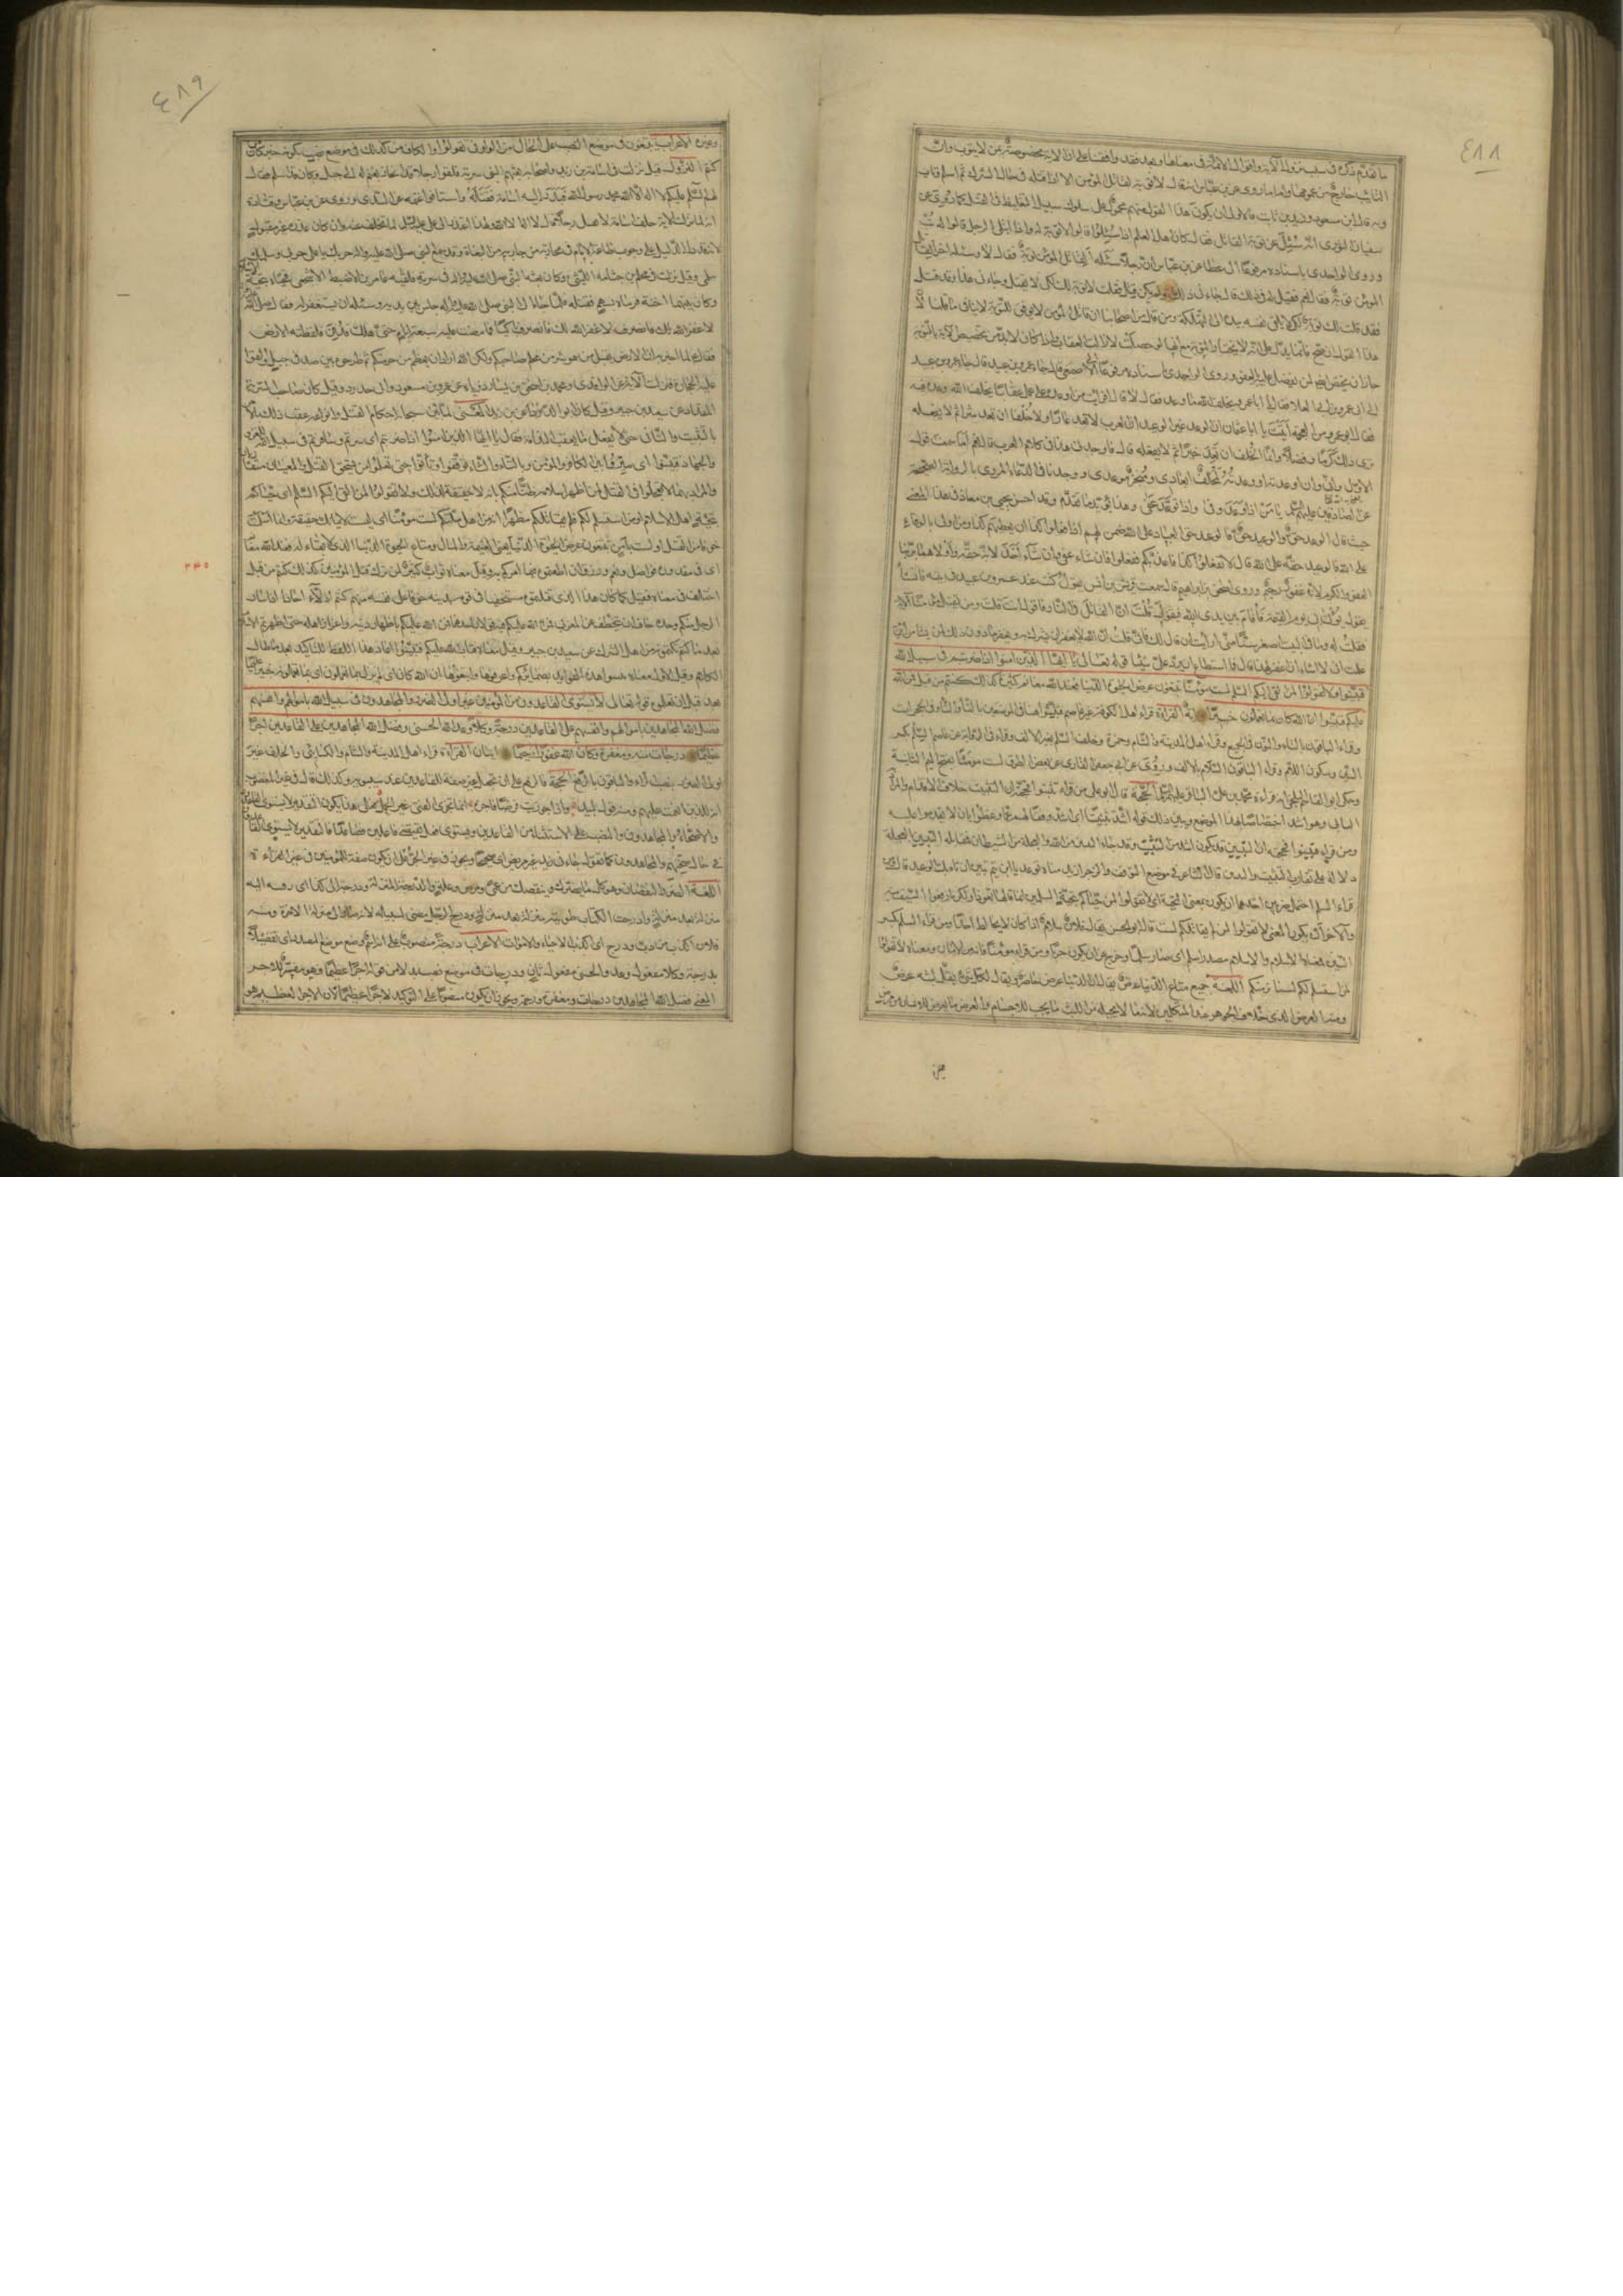 ٤٨٨
ما تقدم ذكره في سبب نزول الآية واقوال الائمة في معناها وبعد فقد وافقنا على ان الآية مخصوصة بمن لا يتوب وان
التائب خارج من عمومها واما ما روي عن ابن عباس انه قال لا توبة لقاتل المؤمن الا اذا قتله في حال الشرك ثم اسلم وتاب
وبه قال ابن مسعود وزيد بن ثابت فالاولى ان يكون هذا القول منهم محمول على سلوك سبيل التغليظ في القتل كما روي عن
سفيان الثوري انه سئل عن توبة القاتل فقال كان اهل العلم اذا سئلوا قالوا لا توبة له واذا ابتلي الرجل قالوا له تب
وروى الواحدي باسناده مرفوعا الى عطا عن ابن عباس ان رجلا سئله ألقاتل المؤمن توبة فقال لا وسئله اخر ألقاتل
المؤمن توبة فقال نعم فقيل له في ذلك قال جاءني ذلك ولم يكن قتل فقلت لا توبة لك لكي لا يقتل وجاءني هذا وقد قتل
فقد قلت لك توبة لكي لا يلقي نفسه بيده الى التهلكة ومن قال من اصحابنا ان قاتل المؤمن لا يوفق للتوبة لا ينافي ما قلناه
هذا القول ان صح فانما يدل على انه لا يختار التوبة مع انها لو حصلت لازالت العقاب واذا كان لا بد من تخصيص الآية بالتوبة
جاز ان يختص ايضا بمن تفضل عليه بالعفو وروى الواحدي باسناده مرفوعا الى الاصمعي قال جاء عمرو بن عبيد
الى ابي عمرو بن العلا فقال يا ابا عمرو يخلف الله ما وعد فقال لا قال افرأيت من اوعده على عمل عقابا يخلف الله وعده فيه
فقال ابو عمرو من العجمة اتيت يا ابا عثمان ان الوعد غير الوعيد ان العرب لا تعد عارا ولا خلفا ان تعد شرا ثم لا يفعله
يرى ذلك كرما وفضلا وانما الخلف ان تعد خيرا ثم لا يفعله قال فاوجدني هذا في كلام العرب قال نعم اما سمعت قول
الاول واني وان اوعدته او وعدته لمخلف ايعادي ومنجز موعدي ووجدنا في الدعاء المروي بالرواية الصحيحة
عن الصادقين عليهم السلم يا من اذا وعد وفا واذا توعد عفا وهذا يؤيد ما تقدم وقد احسن يحيى بن معاذ في هذا المعنى
حيث قال الوعد حق والوعيد حق فالوعد حق العباد على الله ضمن لهم اذا فعلوا كذا ان يعطيهم كذا ومن اولى بالوفاء
على الله فالوعيد حقه على الله قال لا تفعلوا كذا فاعذبكم ففعلوا فان شاء عفى وان شاء اخذ لانه حقه واولاهما بربنا
العفو والكرم لانه غفور رحيم وروى اسحق بن ابراهيم قال سمعت قريش بن انس يقول كنت عند عمرو بن عبيد في بيته فانشأ
يقول يؤتى بي يوم القيمة فاقام بين يدي الله فيقول لي قلت ان القاتل في النار فاقول انت قلت ومن يقتل مؤمنا الآية
فقلت له وما في البيت اصغر سنا مني ارايت ان قال لك فاني قلت ان الله لا يغفر ان يشرك به ويغفر ما دون ذلك لمن يشاء من اين
علمت اني لا اشاء ان اغفر لهذا قال فما استطاع ان يرد علي شيئا قوله تعالى يا ايها الذين امنوا اذا ضربتم في سبيل الله
فتبينوا ولا تقولوا لمن القى اليكم السلم لست مؤمنا تبتغون عرض الحيوة الدنيا فعند الله مغانم كثيرة كذلك كنتم من قبل فمن الله
عليكم فتبينوا ان الله كان بما تعملون خبيرا آية القراءة قراء اهل الكوفة غير عاصم فتثبتوا هنا في الموضعين بالثاء والتاء وفي الحجرات
وقراء الباقون بالتاء والنون في الجميع وقراء اهل المدينة والشام وحمزة وخلف السلم بغير الالف وقراء في الرواية عن عاصم السلم بكسر
السين وسكون اللام وقراء الباقون السلام بالالف وروي عن ابي جعفر القاري عن بعض الطرق لست مؤمنا بفتح الميم الثانية
وحكى ابو القاسم البلخي انه قراءة محمد بن علي الباقر عليهما السلم الحجة قال ابو علي من قراء تثبتوا فحجته ان التثبت خلاف الاقدام والمراد
التأني وهو اشد اختصاصا بهذا الموضع ويبين ذلك قوله اشد تثبيتا اي اشد وقفا لهم عما وعظوا بان لا يقدموا عليه
ومن قراء فتبينوا فحجته ان التبيين قد يكون اشد من التثبت وقد جاء التبين من الله والعجلة من الشيطان فمقابلة التبين بالعجلة
دلالة على تقارب التثبت والتبين قال الشاعر في موضع التوقف والزجر ازيد مناة توعد يا ابن تيم تبين اين تاه بك الوعيد قال ومن
قراء السلم احتمل ضربين احدهما ان يكون بمعنى التحية اي لا تقولوا لمن حياكم بتحية المسلمين انما قالها تعوذا ولكن ارفعوا السيف عنه
والآخر ان يكون المعنى لا تقولوا لمن لم يقاتلكم لست قال ابو الحسن يقال فلان سلام اذا كان لا يخالط احدا ومن قراء السلم بكسر
السين فمعناه الاسلام والاسلام مصدر اسلم اي صار سلما وخرج عن ان يكون حربا ومن قراء مؤمنا فانه من الامان ومعناه لا تقولوا
لمن استسلم لكم لسنا نؤمنكم اللغة جميع متاع الدنيا عرض يقال ان الدنيا عرض حاضر ويقال لكل شيء يقل لبثه عرض
ومنه العرض الذي خلاف الجوهر عند المتكلمين لانه ما لا يجب له من اللبث ما يجب للاجسام والعرض ما يعرض للانسان من مرض
٤٨٩
وغيره الاعراب تبتغون في موضع النصب على الحال من الواو في تقولوا والكاف من كذلك في موضع نصب بكونه خبر كان
كنتم النزول قيل نزلت في اسامة بن زيد واصحابه بعثهم النبي سرية فلقوا رجلا قد انحاز بغنم له الى جبل وكان قد اسلم فقال
لهم السلم عليكم لا اله الا الله محمد رسول الله فبدر اليه اسامة فقتله واستاقوا غنمه عن السدي وروي عن ابن عباس وقتادة
انه لما نزلت الآية حلف اسامة لا يقتل رجلا قال لا اله الا الله وبهذا اعتذر الى علي عليه السلم لما تخلف عنه وان كان عذره غير مقبول
لانه قد دل الدليل على وجوب طاعة الامام في محاربة من حاربه من البغاة وقد سمع النبي صلى الله عليه واله حربك يا علي حربي وسلمك
سلمي وقيل نزلت في محلم بن جثامة الليثي وكان بعثه النبي صلى الله عليه واله في سرية فلقيه عامر بن الاضبط الاشجعي فحياه بتحية
وكان بينهما احنة فرماه بسهم فقتله فلما جاء الى النبي صلى الله عليه واله جلس بين يديه وسئله ان يستغفر له فقال صلى الله عليه
لا غفر الله لك فانصرف باكيا فما مضت عليه سبعة ايام حتى هلك فدفن فلفظته الارض
فقال عليه السلم لما اخبر به ان الارض تقبل من هو شر من محلم صاحبكم ولكن الله اراد ان يعظم من حرمتكم ثم طرحوه بين صدفي جبل والقوا
عليه الحجارة فنزلت الآية عن الواقدي ومحمد بن اسحق بن يسار رواه عن ابن عمر وابن مسعود وابي حدرد وقيل كان صاحب السرية
المقداد عن سعيد بن جبير وقيل كان ابو الدرداء عن ابن زيد المعنى لما بين سبحانه احكام القتل وانواعه عقب ذلك الامر
بالتثبت والتأني حتى لا يفعل ما يعقب الندامة فقال يا ايها الذين امنوا اذا ضربتم اي سرتم وسافرتم في سبيل الله للغزو
والجهاد فتبينوا اي ميزوا بين الكافر والمؤمن وبالثاء والتاء توقفوا وتأنوا حتى تعلموا من يستحق القتل والمعنيان متقاربان
والمراد بهما لا تعجلوا في القتل لمن اظهر اسلامه ظنا منكم بانه لا حقيقة لذلك ولا تقولوا لمن القى اليكم السلم اي حياكم
بتحية اهل الاسلام او من استسلم لكم فلم يقاتلكم مظهرا انه من اهل ملتكم لست مؤمنا اي ليس لايمانك حقيقة وانما اسلمت
خوفا من القتل او لست بآمن تبتغون عرض الحيوة الدنيا يعني الغنيمة والمال ومتاع الحيوة الدنيا الذي لا بقاء له فعند الله مغانم
اي في مقدوره فواضل ونعم ورزق ان اطعتموه فيما امركم به وقيل معناه ثواب كثير لمن ترك قتل المؤمنين كذلك كنتم من قبل
اختلف في معناه فقيل كما كان هذا الذي قتلتموه مستخفيا في قومه بدينه خوفا على نفسه منهم كنتم
الرجل منكم وحده خاف ان يختطف عن المغربي فمن الله عليكم فيه قولان احدهما فمن الله عليكم باظهار دينه واعزاز اهله حتى اظهرتم الاسلام
بعد ما كنتم تكتمونه من اهل الشرك عن سعيد بن جبير وقيل معناه فتاب الله عليكم فتبينوا اعاد هذا اللفظ للتأكيد بعد ما طال
الكلام وقيل الاول معناه تبينوا حاله والثاني معناه تبينوا هذه الفوائد بضمائركم واعرفوها وابتغوها ان الله كان اي لم يزل بما تعملون اي بما تعملونه خبيرا عليما
قبل ان تعملوه قوله تعالى لا يستوي القاعدون من المؤمنين غير اولي الضرر والمجاهدون في سبيل الله باموالهم وانفسهم
فضل الله المجاهدين باموالهم وانفسهم على القاعدين درجة وكلا وعد الله الحسنى وفضل الله المجاهدين على القاعدين اجرا
عظيما درجات منه ومغفرة وكان الله غفورا رحيما ايتان القراءة قراء اهل المدينة والشام والكسائي وخلف غير
اولي الضرر بنصب الراء والباقون بالرفع الحجة قال ابو علي من رفع غير جعله صفة للقاعدين عند سيبويه وكذلك قال في غير المغضوب
انه للذين انعمت عليهم ومثله قول لبيد واذا جوزيت قرضا فاجزه انما يجزي الفتى غير الجمل فعلى هذا يكون التقدير لا يستوي القاعدون
والاصحاء والمجاهدون والنصب على الاستثناء من القاعدين ويستوي فعل يقتضي فاعلين فصاعدا فالتقدير لا يستوي القاعدون
في حال صحتهم والمجاهدون كما تقول جاءني زيد غير مريض اي صحيحا ويجوز في غير الجر على ان يكون صفة للمؤمنين في غير القراءة
اللغة الضرر النقصان وهو كل ما يضرك وينقصك من عمى ومرض وعلة والدرجة المنزلة ودرجته الى كذا اي رفعته اليه
منزلة بعد منزلة وادرجت الكتاب طويته منزلة بعد منزلة ودرج الرجل مضى لسبيله لانه صار الى منزلة الاخرة ومنه
فلان اكذب من دب ودرج اي اكذب الاحياء والاموات الاعراب درجة منصوب على انه اسم وضع موضع المصدر اي تفضيلا
بدرجة وكلا مفعول وعد والحسنى مفعول ثان ودرجات في موضع نصب بدلا من قوله اجرا عظيما وهو مفسر للاجر
المعنى فضل الله المجاهدين درجات ومغفرة ورحمة ويجوز ان يكون منصوبا على التوكيد لاجرا عظيما لان الاجر العظيم هو